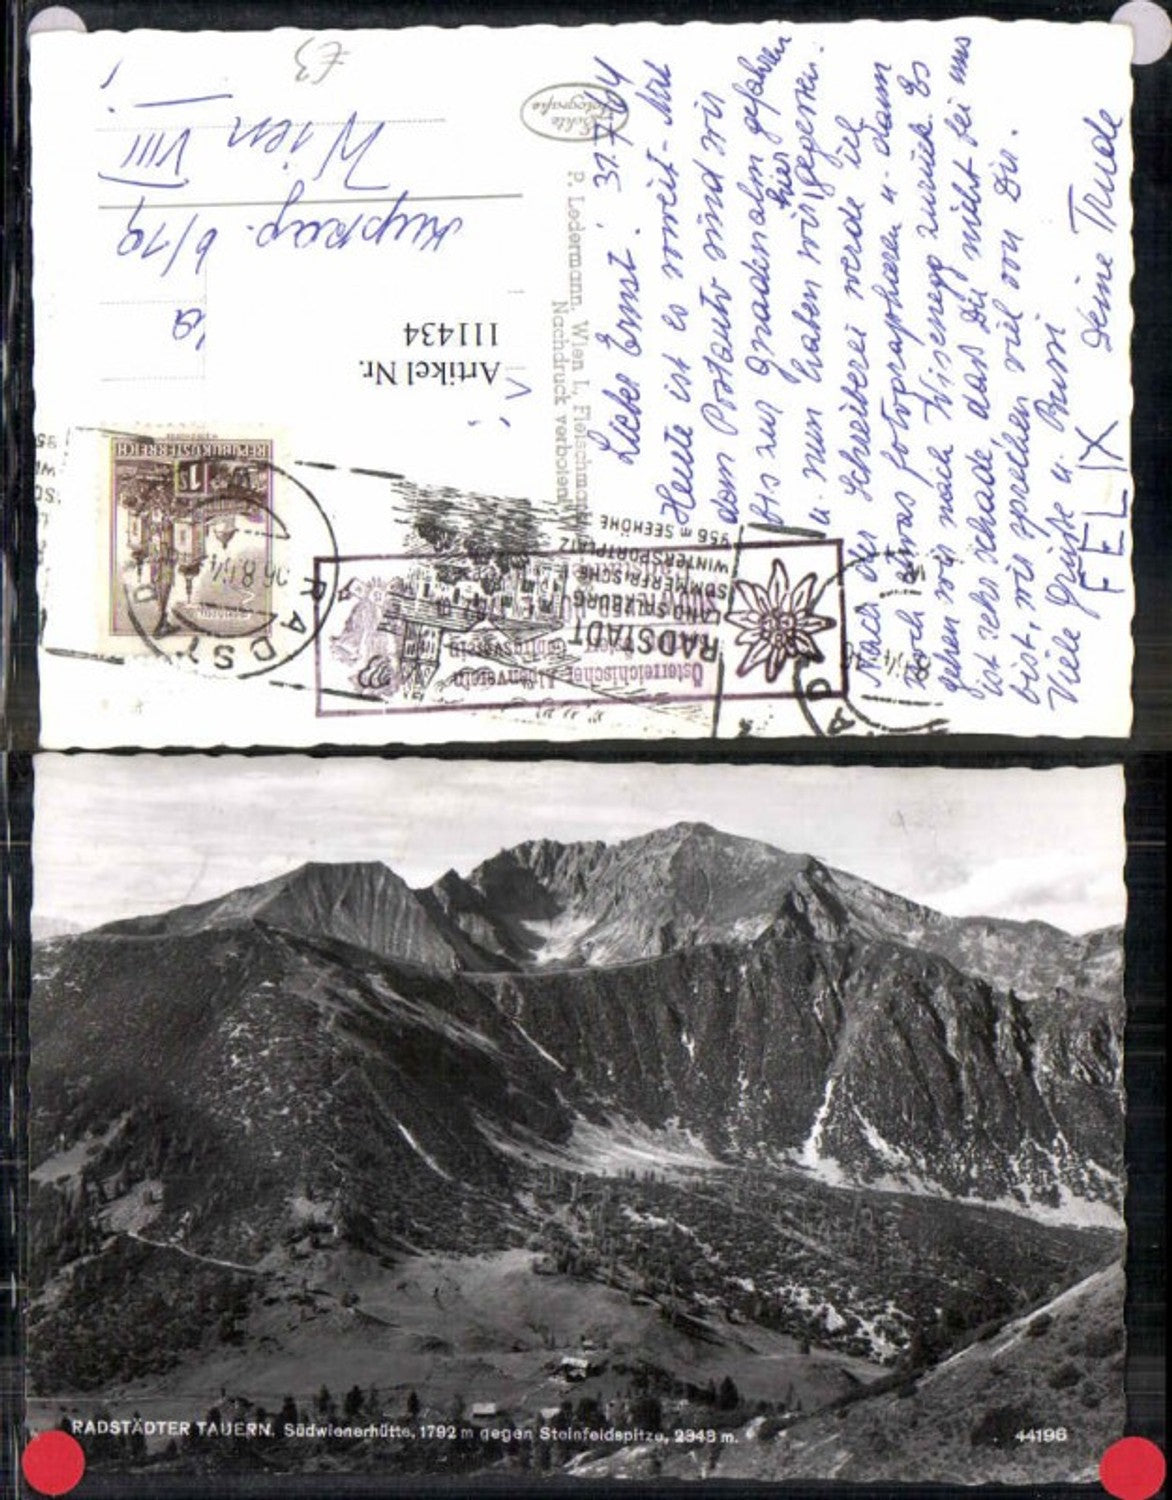 £3
Echte
Fotografie
P. Ledermann, Wien I., Fleischmarkt
Nachdruck verboten
Wien VIII
6/19
Artikel Nr.
111434
REPUBLIK ÖSTERREICH
1S
RADSTADT
RADSTADT
LAND SALZBURG
SOMMERFRISCHE
WINTERSPORTPLATZ
956 m SEEHÖHE
Österreichischer Alpenverein
Gebirgsverein
31.7.64
Lieber Ernst!
Heute ist es soweit. Mit
dem Postauto sind wir
bis zur Gnadenalm gefahren
u. nun haben wir hier gegessen.
Nach der Schreiberei werde ich
noch etwas fotographieren u. dann
gehen wir nach Wisenegg zurück. Es
ist sehr schade, das Du nicht bei uns
bist, wir sprechen viel von Dir.
Viele Grüße u. Bussi
FELIX Deine Trude
RADSTÄDTER TAUERN. Südwienerhütte, 1792 m gegen Steinfeldspitze, 2343 m.
44196